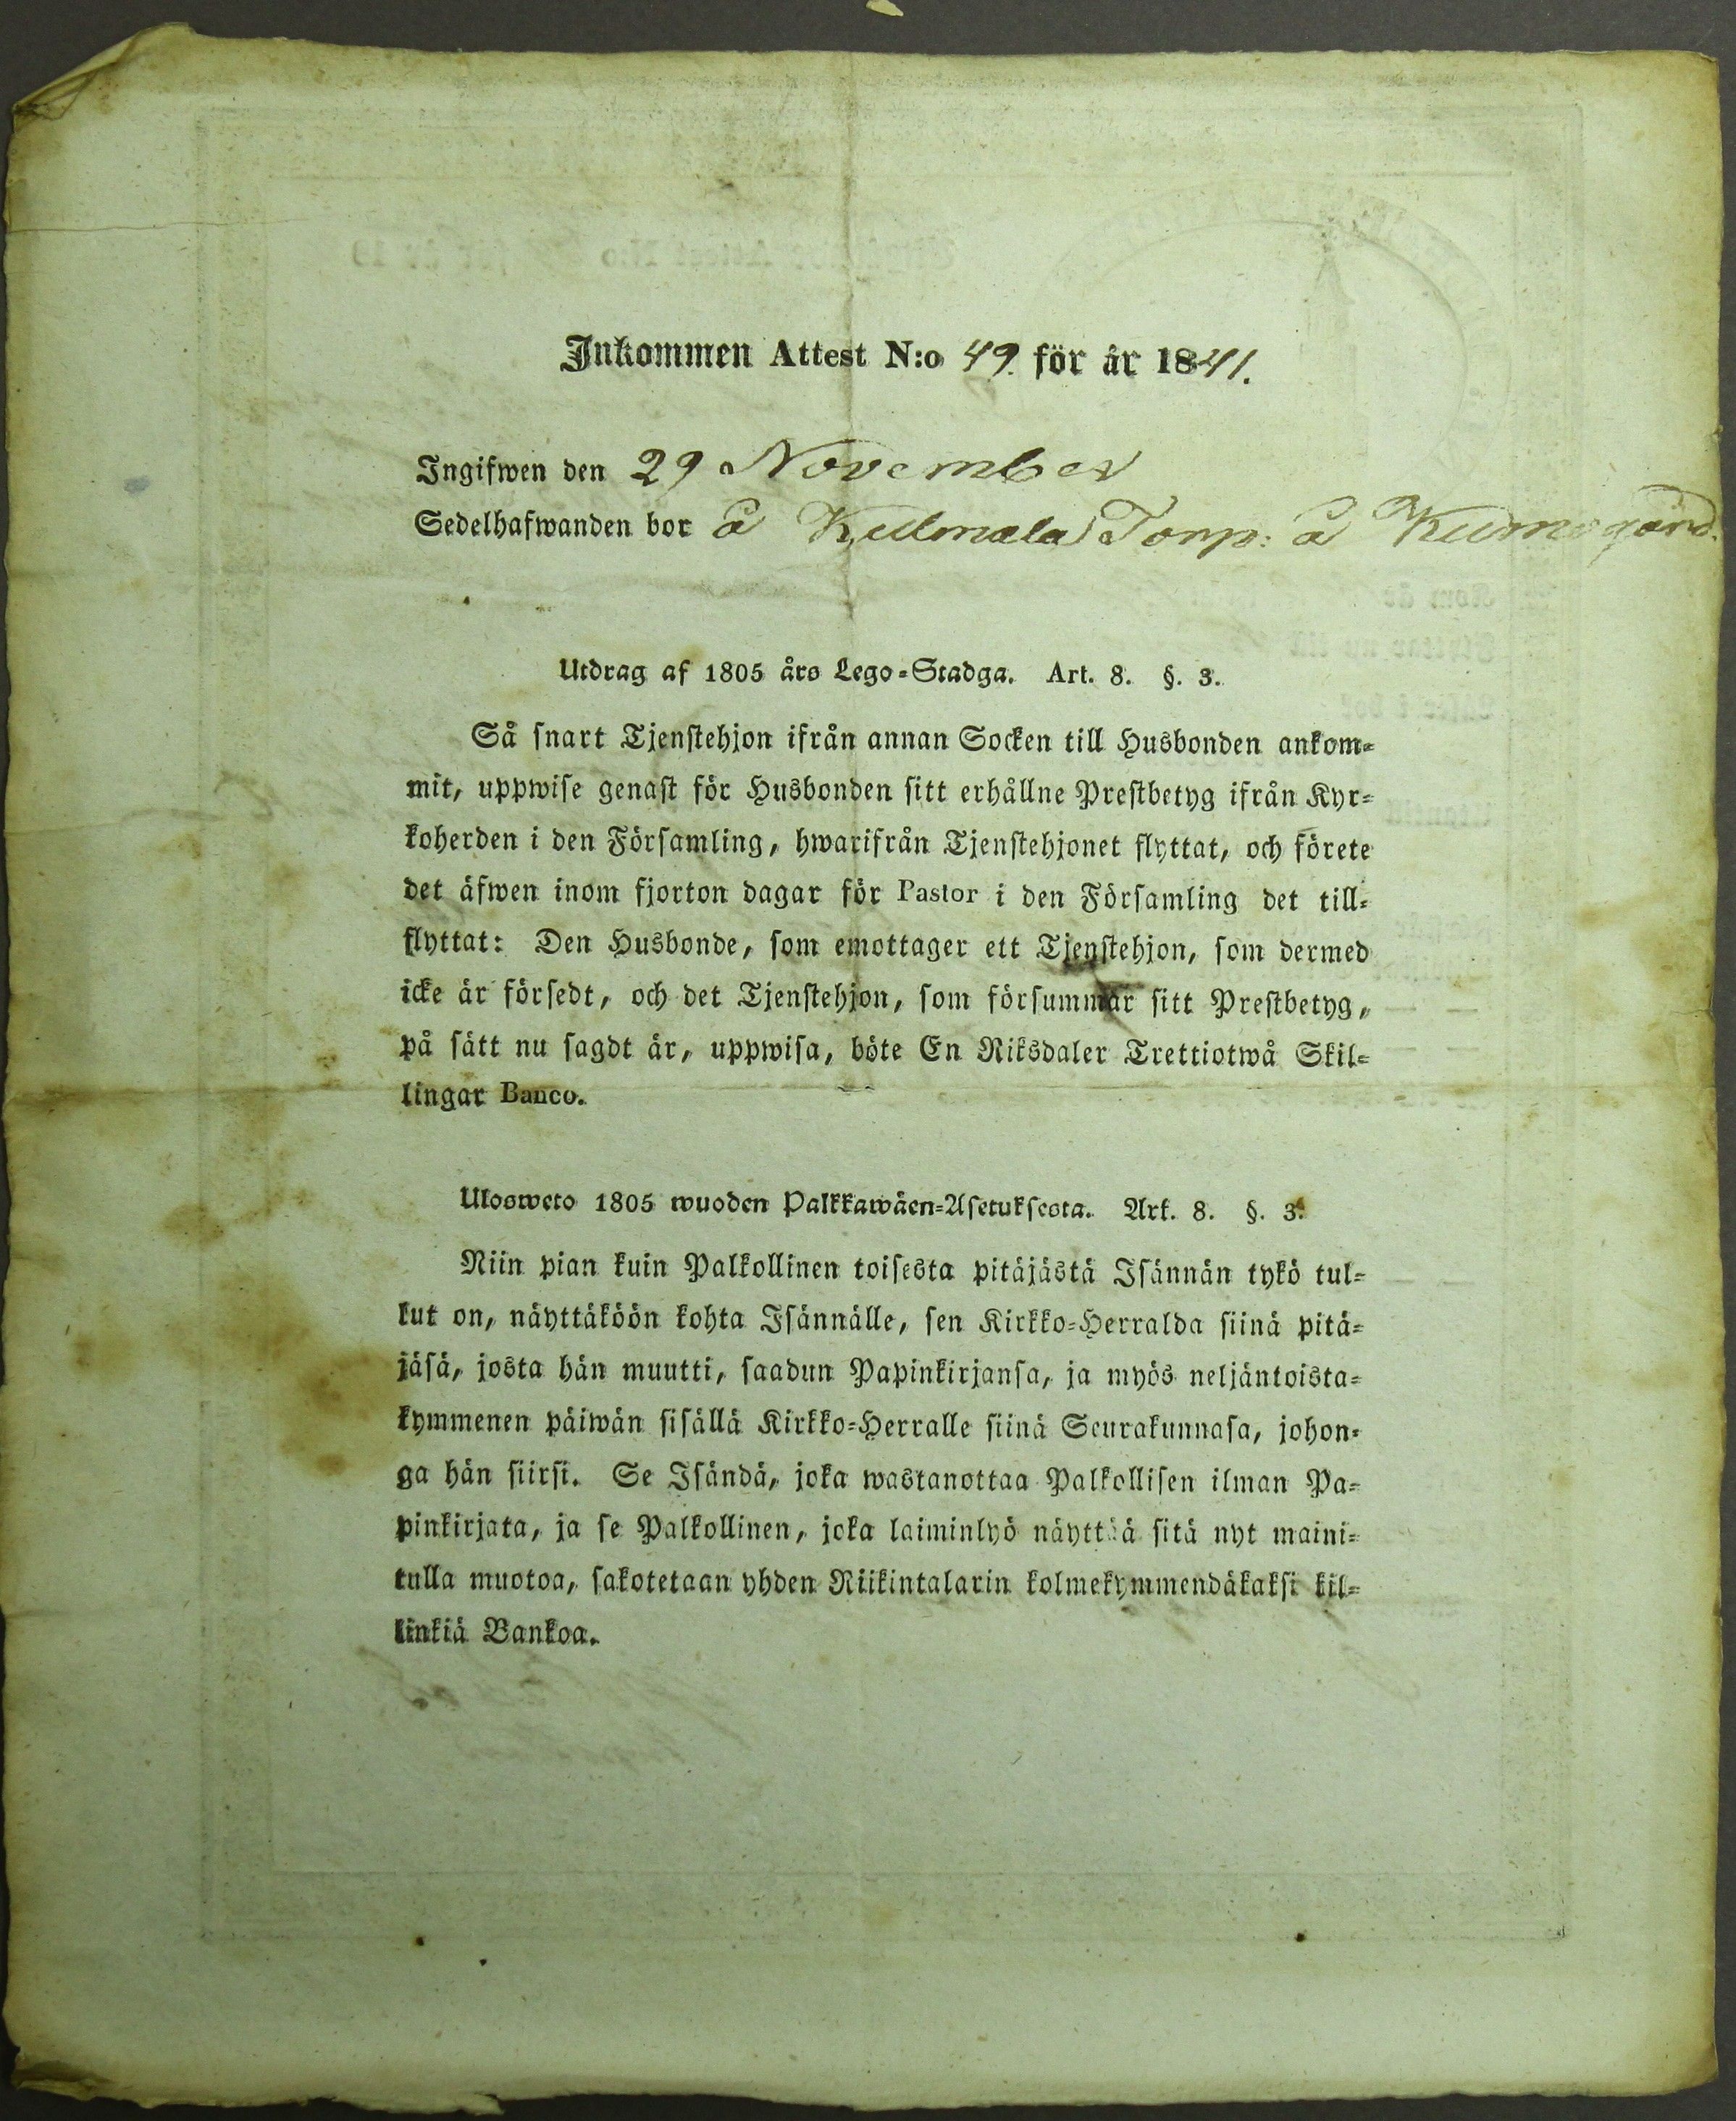 Inkommen Attest N:o 49. för år 1841.
Ingifwen den 29 November
Sedelhafwanden bor å Kullmala Torp: å Kumogård.
Utdrag af 1805 års Lego-Stadga. Art. 8. §. 3.
Så snart Tjenstehjon ifrån annan Socken till Husbonden ankom-
mit, uppwise genast för Husbonden sitt erhållne Prestbetyg ifrån Kyr-
koherden i den Församling, hwarifrån Tjenstehjonet flyttat, och förete
det äfwen inom fjorton dagar för Pastor i den Församling det till-
flyttat: Den Husbonde, som emottager ett Tjenstehjon, som dermed
icke är försedt, och det Tjenstehjon, som försummar sitt Prestbetyg,
på sätt nu sagdt är, uppwisa, böte En Riksdaler Trettiotwå Skil-
lingar Banco.
Ulosweto 1805 wuoden Palkkawäen-Asetuksesta. Art. 8. §. 3.
Niin pian kuin Palkollinen toisesta pitäjästä Isännän tykö tul-
lut on, näyttäköön kohta Isännälle, sen Kirkko-Herralda siinä pitä-
jäsä, josta hän muutti, saadun Papinkirjansa, ja myös neljäntoista-
kymmenen päiwän sisällä Kirkko-Herralle siinä Seurakunnasa, johon-
ga hän siirsi. Se Isändä, joka wastanottaa Palkollisen ilman Pa-
pinkirjata, ja se Palkollinen, joka laiminlyö näyttää sitä nyt maini-
tulla muotoa, sakotetaan yhden Riikintalarin kolmekymmendäkaksi kil-
linkiä Bankoa.